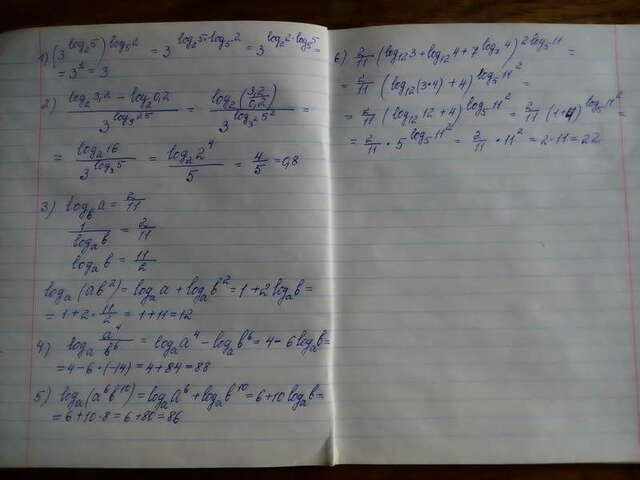 1) (3^{log_2 5})^{log_5 2} = 3^{log_2 5 · log_5 2} = 3^{log_2 2 · log_5 5} =
= 3^1 = 3
2) \frac{log_2 3,2 - log_2 0,2}{3^{log_{3^2} 25}} = \frac{log_2 (\frac{3,2}{0,2})}{3^{log_{3^2} 5^2}} =
= \frac{log_2 16}{3^{log_3 5}} = \frac{log_2 2^4}{5} = \frac{4}{5} = 0,8
3) log_b a = \frac{2}{11}
\frac{1}{log_a b} = \frac{2}{11}
log_a b = \frac{11}{2}
log_a (ab^2) = log_a a + log_a b^2 = 1 + 2 log_a b =
= 1 + 2 · \frac{11}{2} = 1 + 11 = 12
4) log_a \frac{a^4}{b^6} = log_a a^4 - log_a b^6 = 4 - 6 log_a b =
= 4 - 6 · (-14) = 4 + 84 = 88
5) log_a (a^6 b^{10}) = log_a a^6 + log_a b^{10} = 6 + 10 log_a b =
= 6 + 10 · 8 = 6 + 80 = 86
6) \frac{2}{11} (log_{12} 3 + log_{12} 4 + 7^{log_7 4})^{2 log_5 11} =
= \frac{2}{11} (log_{12} (3·4) + 4)^{log_5 11^2} =
= \frac{2}{11} (log_{12} 12 + 4)^{log_5 11^2} = \frac{2}{11} (1+4)^{log_5 11^2} =
= \frac{2}{11} · 5^{log_5 11^2} = \frac{2}{11} · 11^2 = 2 · 11 = 22